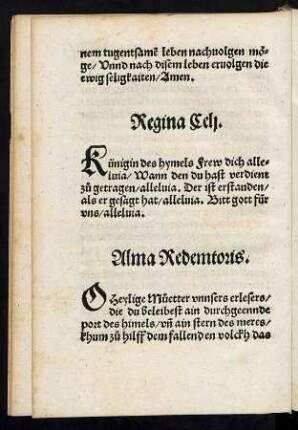 nem tugentsamē leben nachuolgen mö⸗
ge/ Vnnd nach disem leben eruolgen die
ewig seligkaiten/Amen.
Regina Celj.
Künigin des hymels Frew dich alle⸗
luia/ Wann den du hast verdient
zů getragen/alleluia. Der ist erstanden/
als er gesagt hat/alleluia. Bitt gott für
vns/alleluia.
Alma Redemtoris.
O Heylige Müetter vnnsers erlesers/
die du beleibest ain durchgeennde
port des himels/ vñ ain stern des meres/
khum zů hilff dem fallenden volckh das